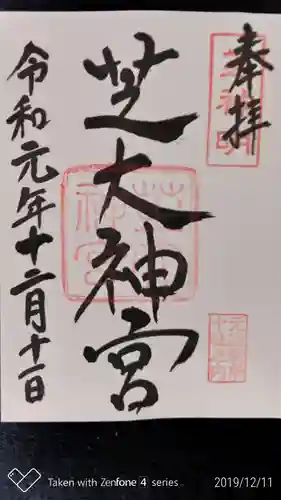 奉拝
芝大神宮
令和元年十二月十一日
芝神明
Taken with Zenfone 4 series
2019/12/11